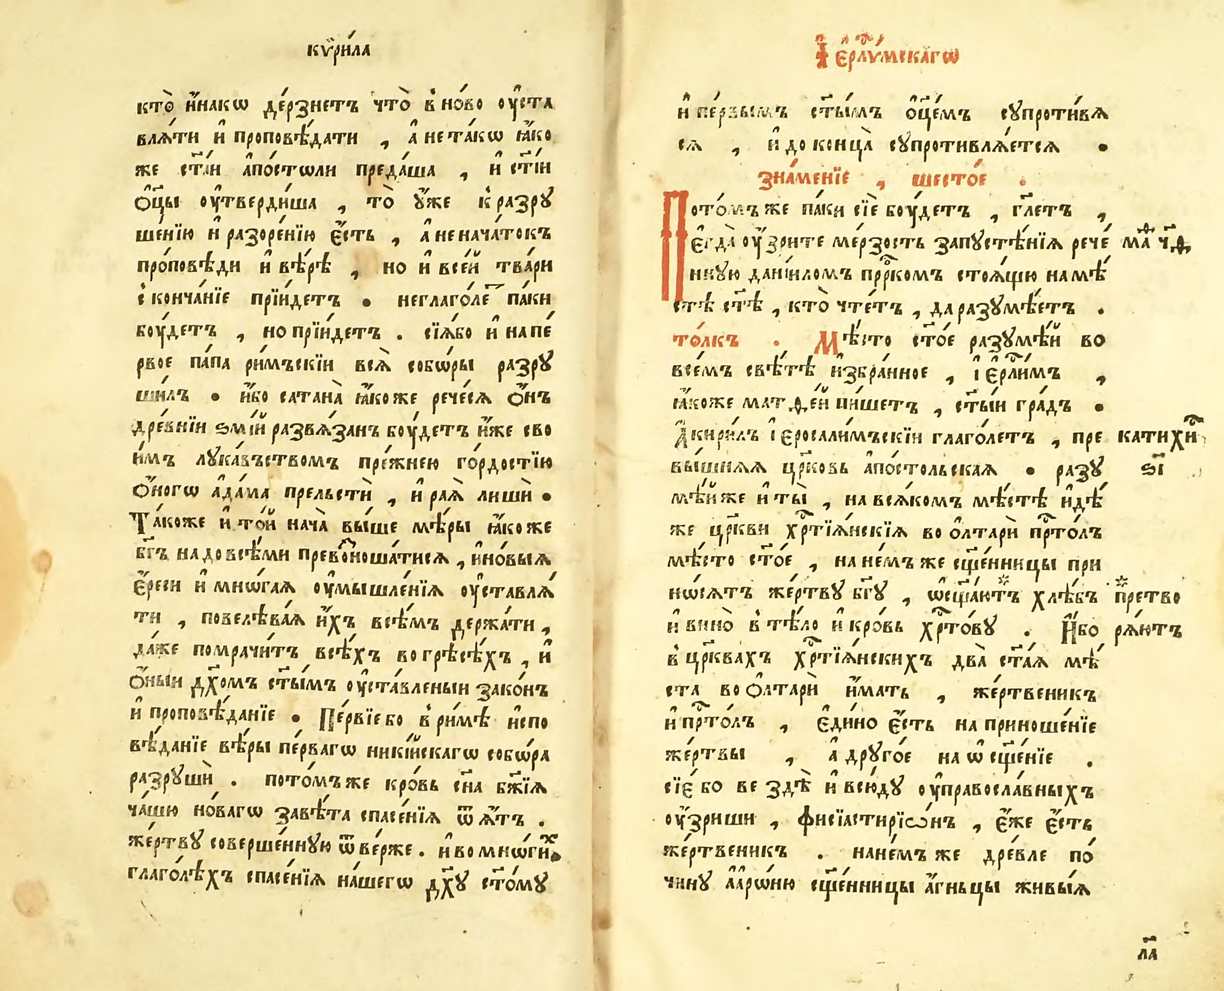 кѵ҆ри́ла
кто̀ и҆на́кѡ де́рзнетъ что̀ в но́во оу҆ста
влѧ́ти и҆ проповѣ́дати , а҆ не та́кѡ ꙗ҆́ко
же ст҃і́и а҆по́стѡли преда́ша , и҆ ст҃і́и
ѻ҆ц҃ы оу҆тверди́ша , то̀ у҆же к разрꙋ
ше́нїю и҆ разоре́нїю є҆́сть , а҆ не нача́токъ
про́повѣди и҆ вѣ́рѣ , но и҆ все́й тва́ри
с конча́нїе прїи́детъ . не глаго́ле па́ки
боу́детъ , но прїи́детъ . сїѧ́бо и҆ на пе́
рвое па́па ри́мъскїи всѧ̀ собѡ́ры разрꙋ
ши́лъ . и҆́бо сатана̀ ꙗ҆́коже рече́сѧ ѻ҆́нъ
дре́внїи ѕмі́й развѧ́занъ боу́детъ и҆́же сво
и́мъ лꙋка́въствомъ пре́жнею го́рдостїю
ѻ҆́ногѡ а҆да́ма прельстѝ , и҆ раѧ̀ лишѝ .
Та́коже и҆ то́й нача̀ вы́ше мѣ́ры ꙗ҆́коже
бг҃ъ надовсѣ́ми превоноша́тисѧ , и҆но́выѧ
є҆́реси и҆ мнѡ́гаѧ оу҆мышле́нїѧ оу҆ставлѧ́
ти , повелѣва́ѧ и҆́хъ всѣ́мъ держа́ти ,
да́же помрачи́тъ всѣ́хъ во грѣсѣ́хъ , и҆
ѻ҆́ныи дх҃омъ ст҃ы́мъ оу҆ста́вленыи зако́нъ
и҆ проповѣ́данїе . Пе́рвїебо в ри́мѣ и҆спо
вѣ́данїе вѣ́ры пе́рвагѡ нике́йскагѡ собѡ́ра
разрꙋшѝ . пото́мъже кро́вь сн҃а бж҃їѧ
ча́шю но́вагѡ завѣ́та спасе́нїѧ ѿ ѧ҆́тъ .
же́ртвꙋ соверше́ннꙋю ѿве́рже . и҆ во мнѡ́гих
глаго́лѣхъ спасе́нїѧ на́шегѡ дх҃ꙋ ст҃о́мꙋ
І҆єрⷭ҇лѵ́мскагѡ
и҆ пе́рвымъ ст҃ы́мъ ѻ҆ц҃е́мъ сꙋпроти́вѧ
сѧ , и҆ до конца̀ сꙋпротивлѧ́етсѧ .
зна́менїе , шесто́е .
Пото́мъже па́ки сїе боу́детъ , гл҃етъ ,
є҆гда̀ оу҆́зрите ме́рзость запꙋстѣ́нїѧ рече́
ннꙋю данїи́ломъ прⷪ҇ркомъ стоѧ́щю на мѣ́
стѣ ст҃ѣ , кто̀ чте́тъ , да разꙋмѣ́етъ .
ма҃ ч҃ѳ
то́лкъ . Мѣ́сто ст҃о́е разꙋмѣ́й во
все́мъ свѣ́тѣ и҆збра́нное , і҆єрⷭ҇ли́мъ ,
ꙗ҆́коже матѳе́й пи́шетъ , ст҃ы́и гра́дъ .
А҆ кири́лъ і҆єросали́мъскїи глаго́летъ , пре
вы́шнѧѧ цр҃ковь а҆по́стольскаѧ . разꙋ
катихи
ѕ҃і
мѣ́йже и҆ ты̀ , на всѧ́комъ мѣ́стѣ и҆дѣ́
же цр҃кви хрⷭ҇тїѧ́нскїѧ во ѻ҆лтарѝ прⷭ҇то́лъ
мѣ́сто ст҃о́е , на не́мъже сщ҃е́нницы при
нѡ́сѧтъ же́ртвꙋ бг҃ꙋ , ѡ҆сщ҃а́ютъ хлѣ́бъ
и҆ вино̀ в тѣ́ло и҆ кро́вь хрⷭ҇то́вꙋ . И҆́бо
претво
рѧ́ютъ
в цр҃квахъ хрⷭ҇тїѧ́нскихъ два̀ ст҃а́ѧ мѣ́
ста во ѻ҆лтарѝ и҆́мать , же́ртвеникъ
и҆ прⷭ҇то́лъ , є҆ди́но є҆́сть на приноше́нїе
же́ртвы , а҆ дрꙋго́е на ѡ҆ сщ҃е́нїе .
сїе́ бо ве здѣ̀ и҆ всю́дꙋ оу҆правосла́вныхъ
оу҆́зриши , фисїастирїѻ́нъ , є҆́же є҆́сть
же́ртвеникъ . на не́мъже дре́вле по́
чинꙋ а҆арѡ́ню сщ҃е́нницы а҆́гньцы живы́ѧ
л҃а